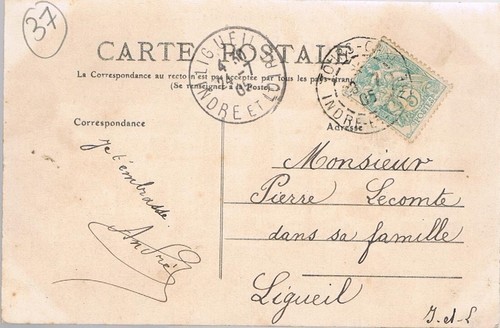 37
CARTE POSTALE
La Correspondance au recto n'est pas acceptée par tous les pays étrangers
(Se renseigner à la Poste)
LIGUEIL
INDRE ET LOIRE
TOURS
INDRE-ET
05
Correspondance
Adresse
Je t'embrasse
André
Monsieur
Pierre Lecomte
dans sa famille
Ligueil
I-et-L